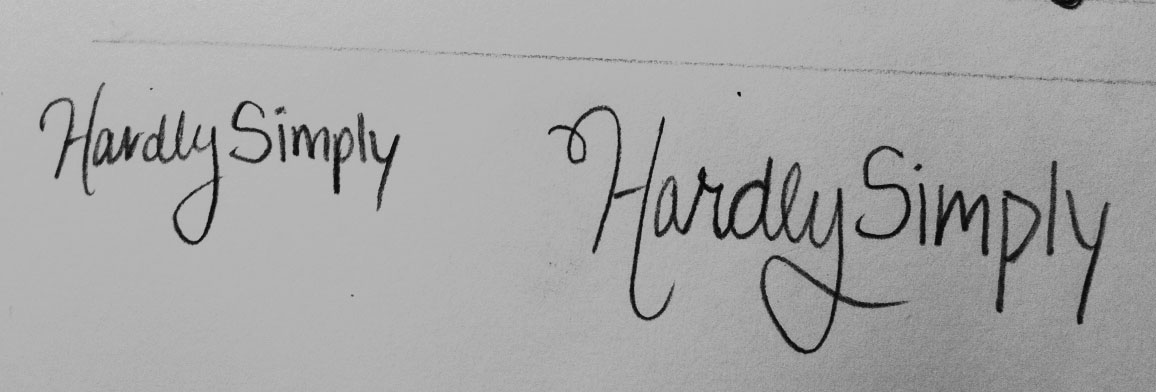 Hardly Simply
Hardly Simply